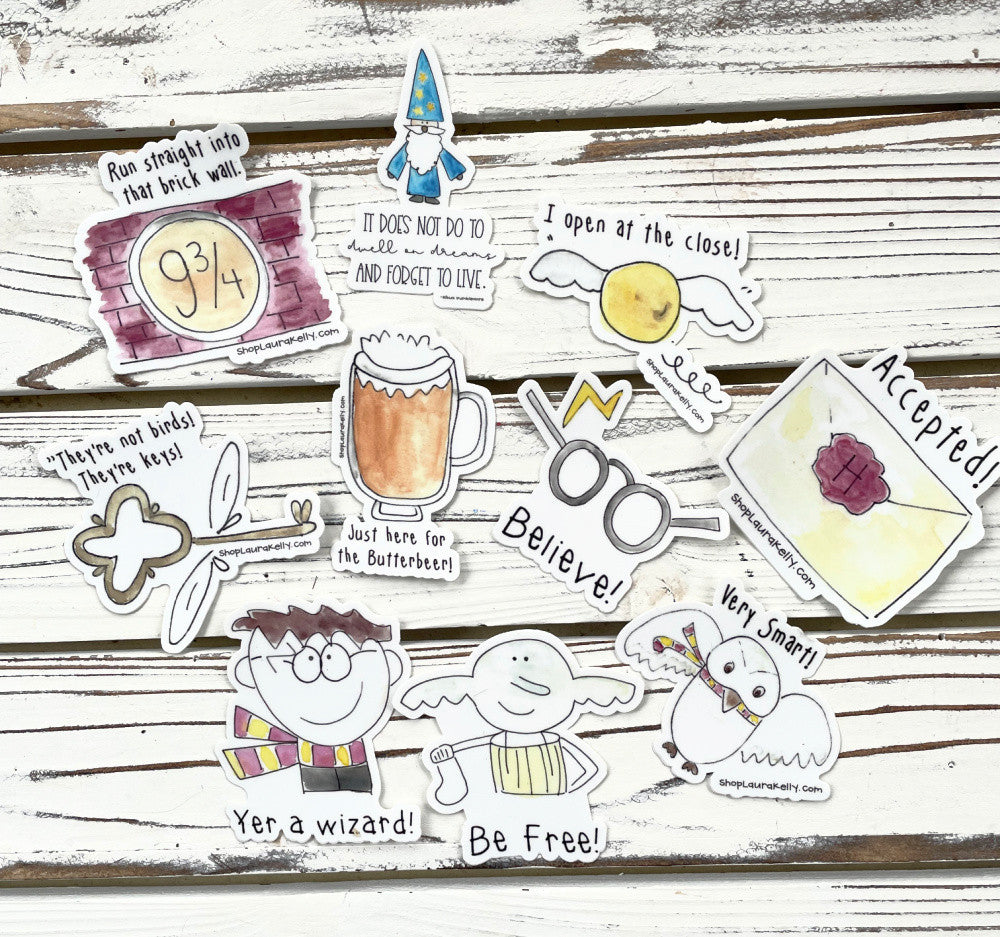 Run straight into
that brick wall.
9 3/4
ShopLauraKelly.com
IT DOES NOT DO TO
dwell on dreams
AND FORGET TO LIVE.
-Albus Dumbledore
"I open at the close!"
ShopLauraKelly.com
"They're not birds!
They're keys!
ShopLauraKelly.com
ShopLauraKelly.com
Just here for
the Butterbeer!
Believe!
Accepted!
H
ShopLauraKelly.com
Yer a wizard!
Be Free!
Very Smart!
ShopLauraKelly.com